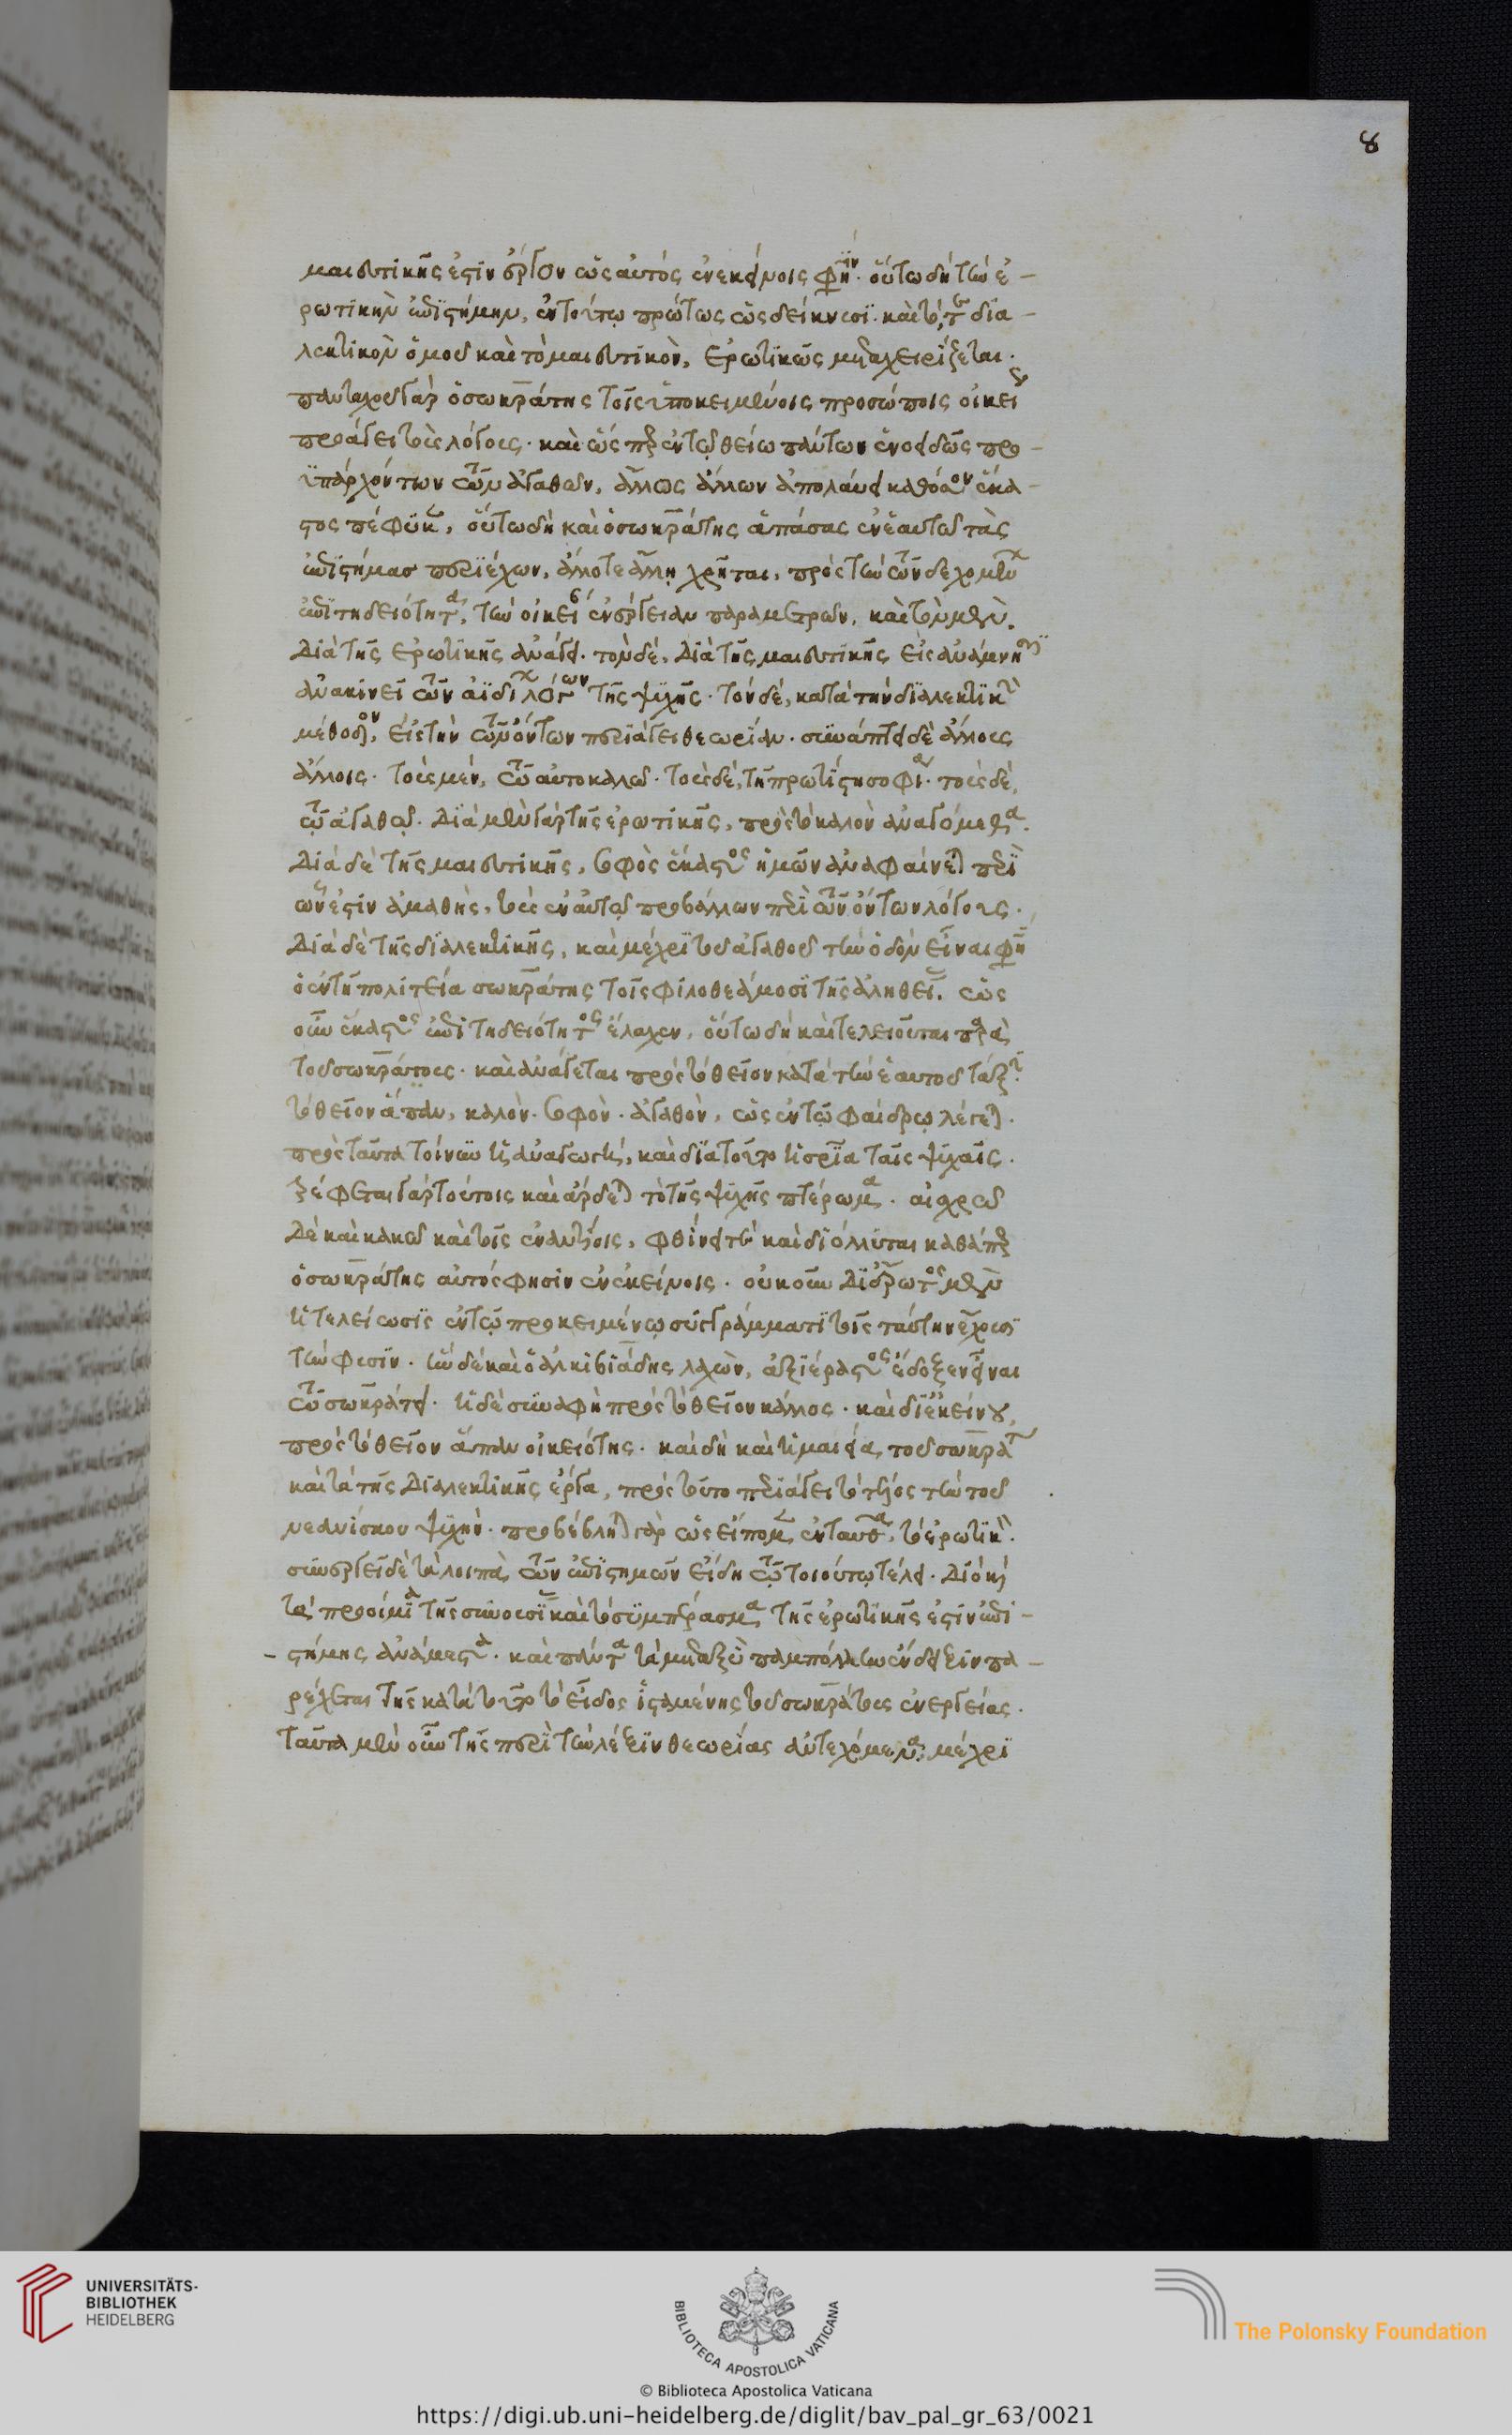 8
μαιευτικῆς ἐστὶν ἔργον ὡς αὐτὸς ἐν ἐκείνοις φησὶν· οὕτω δὴ τὴν ἐ-
ρωτικὴν ἐπιστήμην, ἐν τούτῳ πρώτως ὡς δείκνυσι· καὶ τό,τε δια-
λεκτικὸν ὁμοῦ καὶ τὸ μαιευτικὸν, ἐρωτικῶς μεταχειρίζεται·
πανταχοῦ γὰρ ὁ σωκράτης τοῖς ὑποκειμένοις προσώποις οἰκείους
προάγει τοὺς λόγους· καὶ ὥσπερ ἐν τῷ θείῳ πάντων ἑνοειδῶς προ-
ϋπαρχόντων τῶν ἀγαθῶν, ἄλλως ἄλλων ἀπολαύει καθόσον ἕκα-
στος πέφυκεν, οὕτω δὴ καὶ ὁ σωκράτης ἁπάσας ἐν ἑαυτῷ τὰς
ἐπιστήμας περιέχων, ἄλλοτε ἄλλῃ χρῆται, πρὸς τὴν τῶν δεχομένων
ἐπιτηδειότητα, τὴν οἰκείαν ἐνέργειαν παραμετρῶν, καὶ τὸν μὲν,
διὰ τῆς ἐρωτικῆς ἀνάγει· τὸν δέ, διὰ τῆς μαιευτικῆς εἰς ἀνάμνησιν
ἀνακινεῖ τῶν ἀϊδίων λόγων τῆς ψυχῆς· τὸν δέ, κατὰ τὴν διαλεκτικὴν
μέθοδον, εἰς τὴν τῶν ὄντων περιάγει θεωρίαν· συνάπτει δὲ ἄλλους
ἄλλοις· τοὺς μέν, τῷ αὐτοκαλῷ· τοὺς δέ, τῇ πρωτίστῃ σοφίᾳ· τοὺς δέ,
τῷ ἀγαθῷ· διὰ μὲν γὰρ τῆς ἐρωτικῆς, πρὸς τὸ καλὸν ἀναγόμεθα·
διὰ δὲ τῆς μαιευτικῆς, σοφὸς ἕκαστος ἡμῶν ἀναφαίνεται περὶ
ὧν ἐστὶν ἀμαθὴς, τοὺς ἐν αὐτῷ προβάλλων περὶ τῶν ὄντων λόγους·
διὰ δὲ τῆς διαλεκτικῆς, καὶ μέχρι τοῦ ἀγαθοῦ τὴν ὁδὸν εἶναι φησὶν
ὁ ἐν τῇ πολιτείᾳ σωκράτης τοῖς φιλοθεάμοσι τῆς ἀληθείας· ὡς
οὖν ἕκαστος ἐπιτηδειότητος ἔλαχεν, οὕτω δὴ καὶ τελειοῦται παρὰ
τοῦ σωκράτους· καὶ ἀνάγεται πρὸς τὸ θεῖον κατὰ τὴν ἑαυτοῦ τάξιν·
τὸ θεῖον ἅπαν, καλὸν· σοφὸν· ἀγαθὸν, ὡς ἐν τῷ φαίδρῳ λέγεται·
πρὸς ταῦτα τοίνυν ἡ ἀναγωγή, καὶ διὰ τούτων ἡ σωτηρία ταῖς ψυχαῖς·
τρέφεται γὰρ τούτοις καὶ ἄρδεται τὸ τῆς ψυχῆς πτέρωμα· αἰσχρῷ
δὲ καὶ κακῷ καὶ τοῖς ἐναντίοις, φθίνει τε καὶ διόλλυται καθάπερ
ὁ σωκράτης αὐτός φησιν ἐν ἐκείνοις· οὐκοῦν δι' ἔρωτος μὲν
ἡ τελείωσις ἐν τῷ προκειμένῳ συγγράμματι τοῖς ταύτην ἔχουσι
τὴν φύσιν· ἣν δὲ καὶ ὁ ἀλκιβιάδης λαχὼν, ἀξιέραστος ἔδοξεν εἶναι
τῷ σωκράτει· ἡ δὲ συναφὴ πρὸς τὸ θεῖον κάλλος· καὶ δι' ἐκείνου,
πρὸς τὸ θεῖον ἅπαν οἰκειότης· καὶ δὴ καὶ ἡ μαιεία τοῦ σωκράτους
καὶ τὰ τῆς διαλεκτικῆς ἔργα, πρὸς τοῦτο περιάγει τὸ τέλος τὴν τοῦ
νεανίσκου ψυχήν· προβέβληται γὰρ ὡς εἴπομεν ἐνταῦθα, τὸ ἐρωτικὸν·
συνεργεῖ δὲ τὰ λοιπὰ τῶν ἐπιστημῶν εἴδη τῷ τοιούτῳ τέλει· διὸ καὶ
τὰ προοίμια τῆς συνουσίας καὶ τὸ συμπέρασμα τῆς ἐρωτικῆς ἐστὶν ἐπι-
-στήμης ἀνάμεστα· καὶ πάντα τὰ μεταξὺ παμπόλλην ἔνδειξιν πα-
ρέχεται τῆς κατὰ τοῦτο τὸ εἶδος ἱσταμένης τοῦ σωκράτους ἐνεργείας·
ταῦτα μὲν οὖν τῆς περὶ τὴν λέξιν θεωρίας ἀντεχόμενα, μέχρι
UNIVERSITÄTS-
BIBLIOTHEK
HEIDELBERG
BIBLIOTECA APOSTOLICA VATICANA
The Polonsky Foundation
© Biblioteca Apostolica Vaticana
https://digi.ub.uni-heidelberg.de/diglit/bav_pal_gr_63/0021